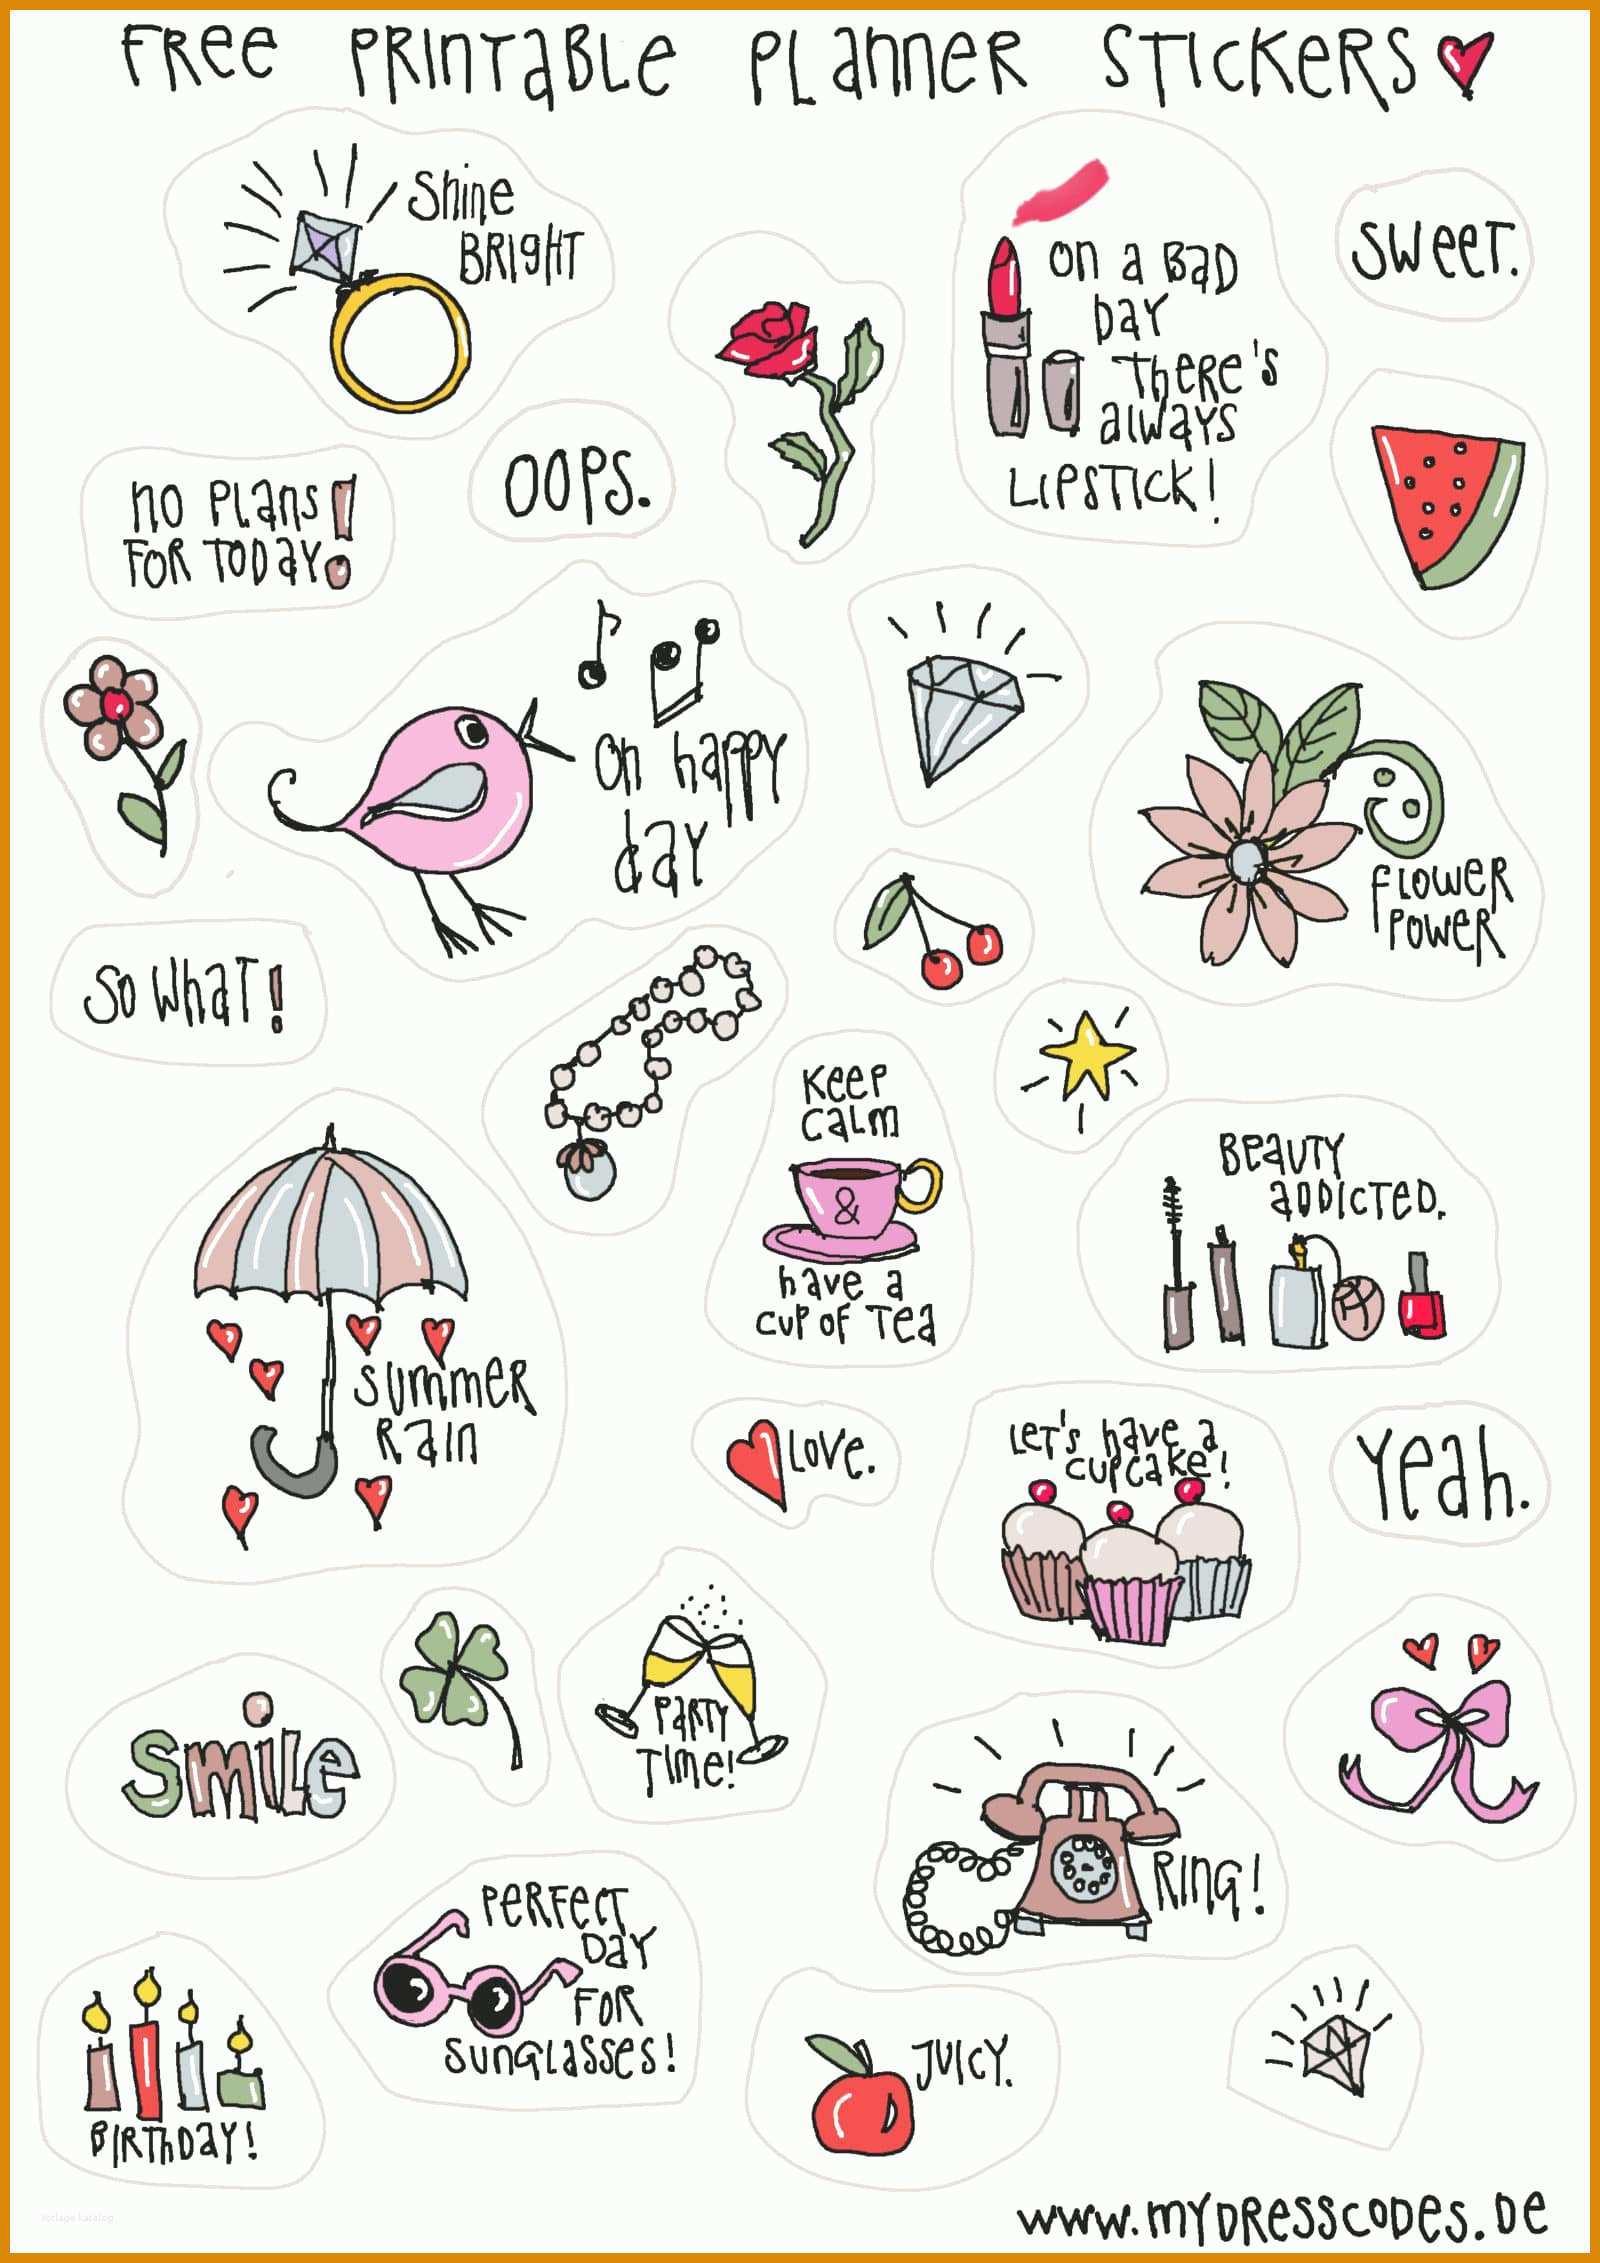 FREE PRINTABLE PLANNER STICKERS
Shine
BRIGHT
ON A BAD
DAY
THERE'S
ALWAYS
LIPSTICK!
SWEET.
NO PLANS
FOR TODAY!
OOPS.
Oh happy
day
FLOWER
POWER
SO WHAT!
KEEP
CALM
&
have a
CUP OF TEA
BEAUTY
ADDICTED.
SUMMER
RAIN
LOVE.
LET'S have a
CUPCAKE!
Yeah.
PARTY
TIME!
Smile
RING!
PERFECT
DAY
FOR
SUNGLASSES!
BIRTHDAY!
JUICY.
www.MYDRESSCODES.DE
vorlage katalog